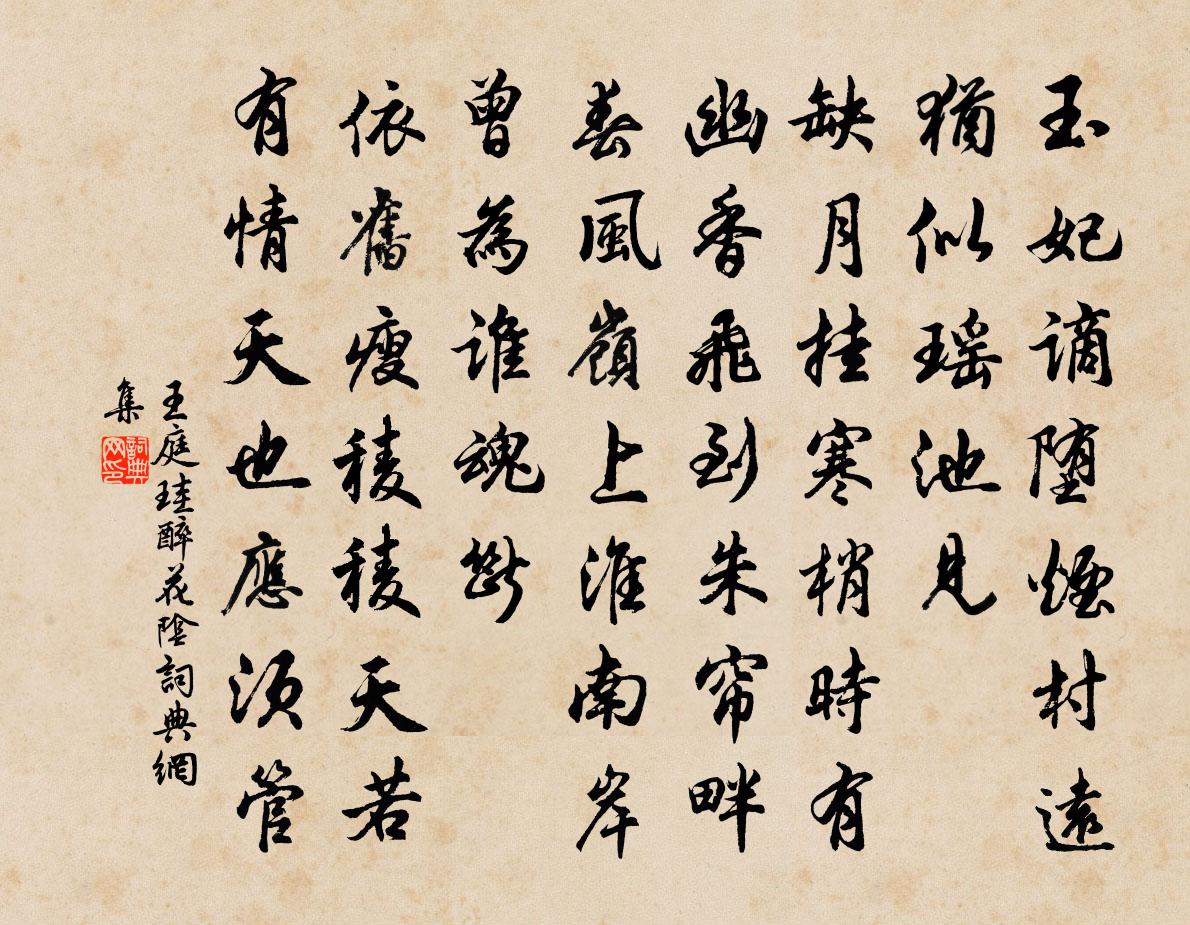 玉妃謫堕煙村遠
猶似瑤池見
缺月挂寒梢時有
幽香飛到朱帘畔
春風嶺上淮南岸
曾為誰魂斷
依舊瘦稜稜天若
有情天也應須管
王庭珪醉花陰詞典網
集
詞典网印